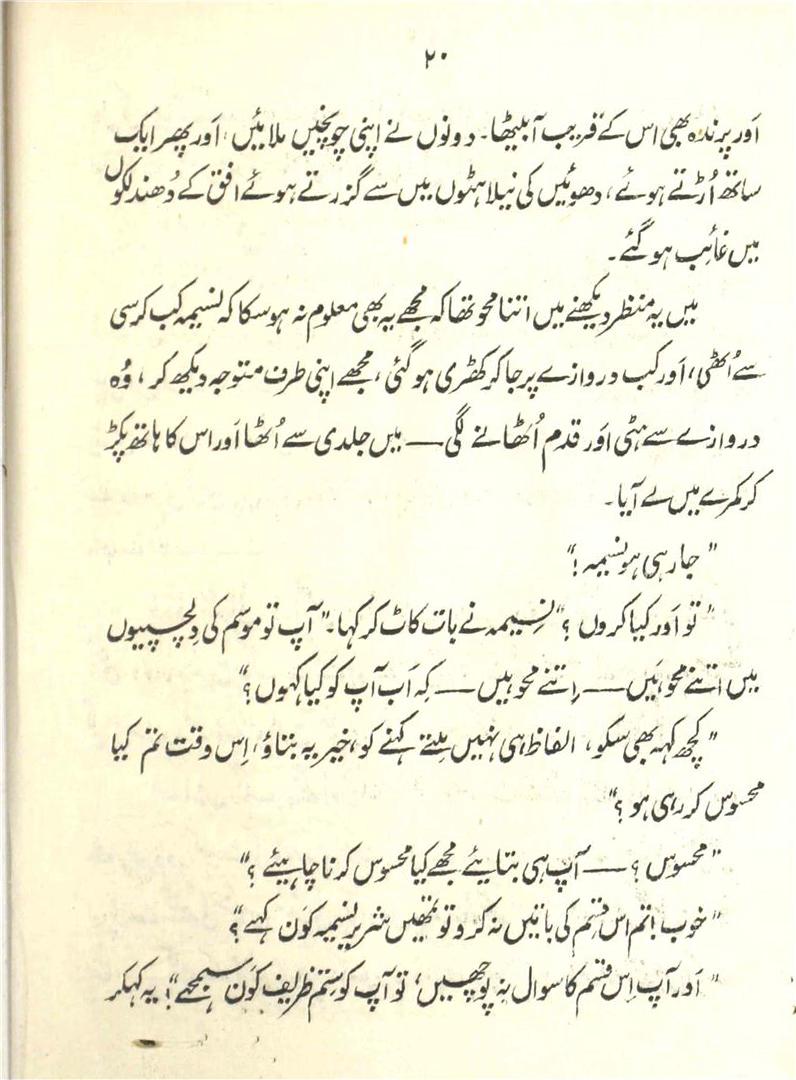 ۲۰
اَور پرندہ بھی اس کے قریب آ بیٹھا۔ دونوں نے اپنی چونچیں ملائیں، اَور پھر ایک
ساتھ اُڑتے ہوئے، دھوئیں کی نیلاہٹوں میں سے گزرتے ہوئے افق کے دُھندلکوں
میں غائب ہو گئے۔
میں یہ منظر دیکھنے میں اتنا محو تھا کہ مجھے یہ بھی معلوم نہ ہو سکا کہ نسیمہ کب کرسی
سے اُٹھی، اَور کب دروازے پر جا کر کھڑی ہو گئی، مجھے اپنی طرف متوجہ دیکھ کر، وُہ
دروازے سے ہٹی اَور قدم اُٹھانے لگی — میں جلدی سے اُٹھا اَور اس کا ہاتھ پکڑ
کر کمرے میں لے آیا۔
"جا رہی ہو نسیمہ!"
"تو اَور کیا کروں؟" نسیمہ نے بات کاٹ کر کہا۔ "آپ تو موسم کی دِلچسپیوں
میں اتنے محو ہَیں — اِتنے محو ہیں — کِہ اَب آپ کو کیا کہوں؟"
"کچھ کہہ بھی سکو، الفاظ ہی نہیں مِلتے کہنے کو، خیر یہ بتاؤ، اِس وقت تم کیا
محسوس کر رہی ہو؟"
"محسوس؟ — آپ ہی بتایئے مجھے کیا محسوس کرنا چاہیئے؟"
"خوب! تم اس قِسم کی باتیں نہ کرو تو تمھیں شریر نسیمہ کون کہے؟"
"اَور آپ اِس قسم کا سوال نہ پوچھیں، تو آپ کو ستم ظریف کَون سمجھے"! یہ کہکر